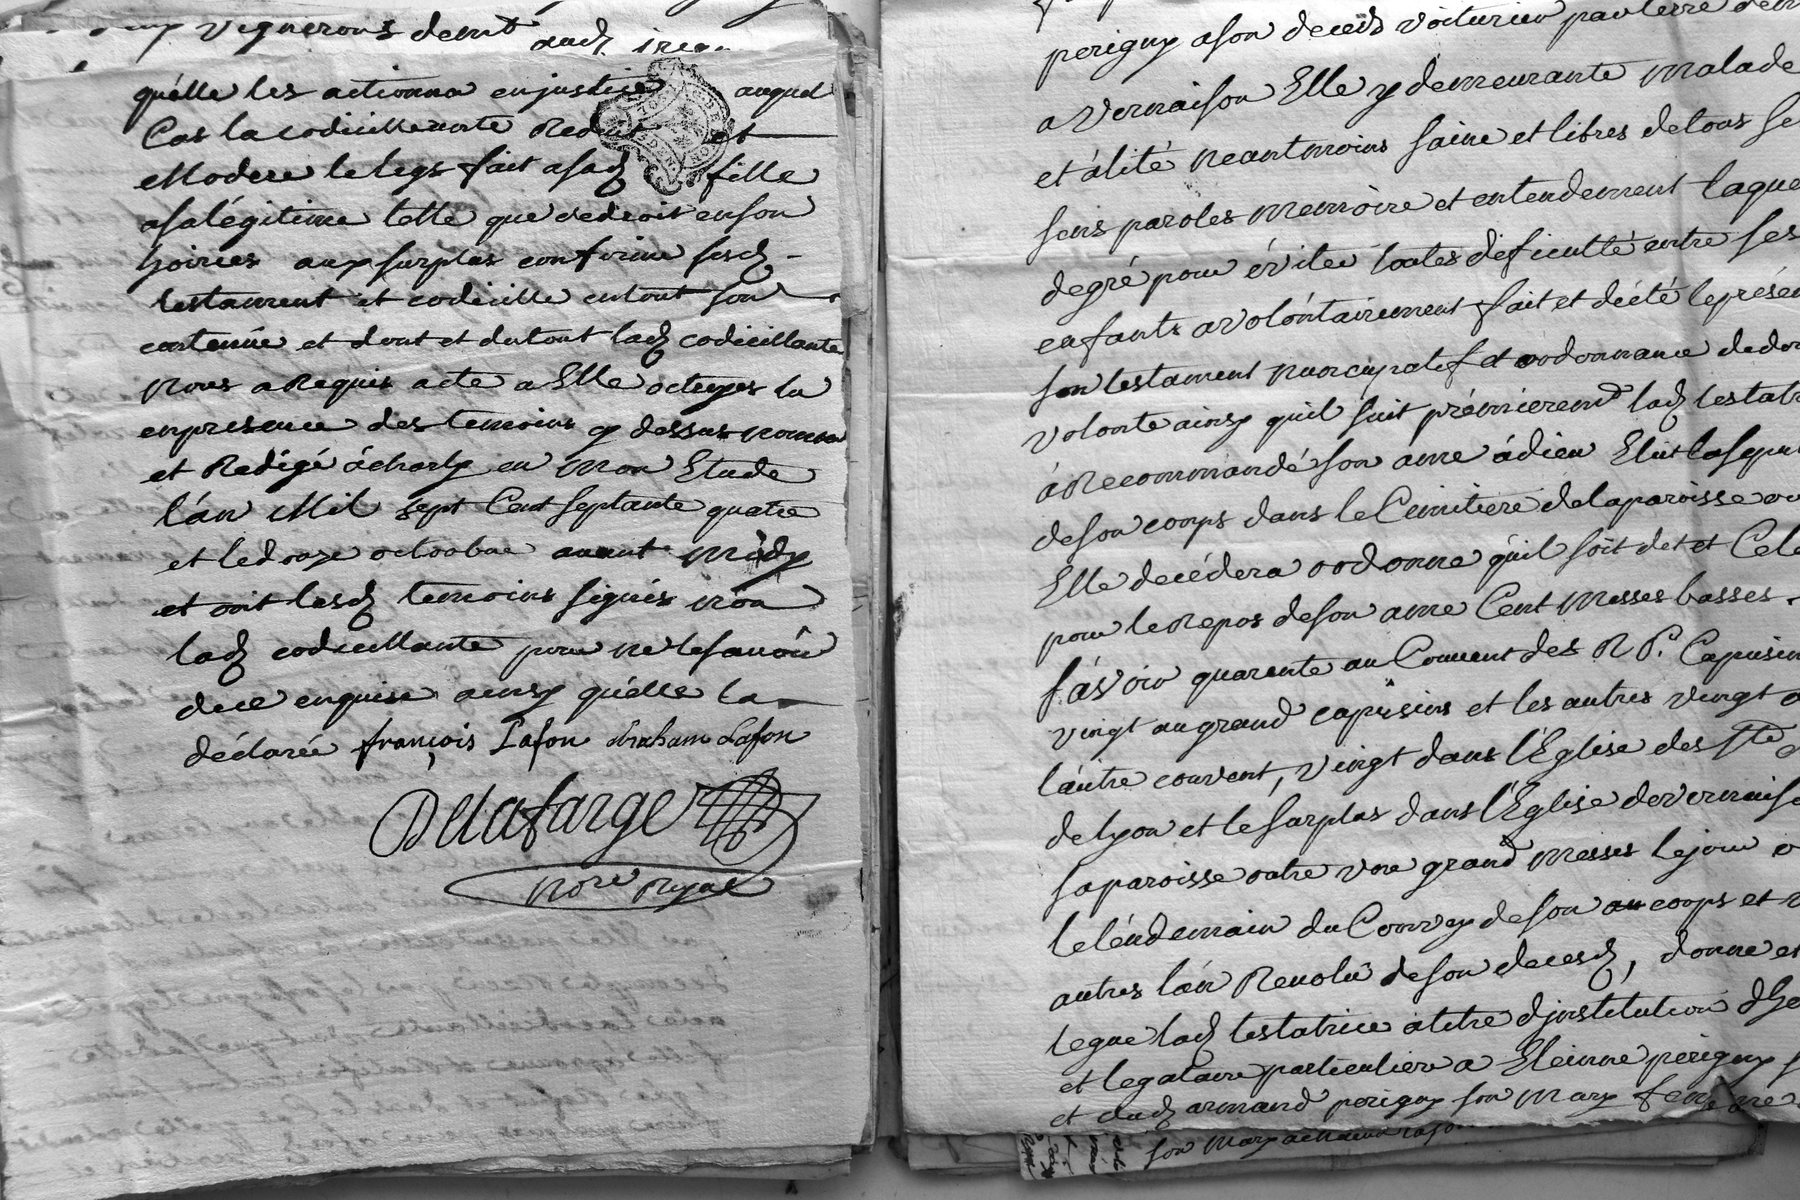 vignerons demt aud
quélle les actionna enjustice auquel
Cas la codicillante Reduit et
Modere le legs fait asad fille
asalégitime telle que dedroit enson
hoiries aux surplus confirme sesd
testament et codicille entout son
contenüe et dont et dutout lad codicillante
Nous aRequis acte a Elle octroyes la
enpresence des temoins y dessus nommes
et Redigé ácharly en mon Etude
lán Mil sept Cent septante quatre
et ledouze octoobre avant midy
et ont lesd temoins signés non
lad codicillante pour ne lesavoir
dece enquise ainsy quélle la
déclarée françois Lafon abraham Lafon
Delafarge
Nore Royal
perigny ason decéds voiturier parterre
a Vernaison Elle y demeurante Malade
et álité neantmoins saine et libres detous se
sens paroles Memoire et entendement laque
degré pour éviter toutes dificulté entre ses
enfants avolóntairement fait et dicté leprésen
son testament nuncupatif et oodonnance dedon
volonte ainsy quil suit prémierement lad testatr
áRecommandé son ame ádieu Elit lasepul
deson corps dans le Cimitiere delaparoisse ou
Elle decédera oodonne qúil soit dit et Cele
pour leRepos deson ame Cent Messes basses
sávoir quarente au Couvent des R P. Capusin
vingt augrand capusins et les autres vingt a
láutre couvent, vingt dans l'Eglise des Ste
delyon et le surplus dans l'Eglise devernaiso
saparoisse outre une grand Messes lejour o
lelendemain du Convoy deson au corps et
autres lán Revolu deson decesd, donne et
legue lad testatrice átitre d'jnstitution d'he
et legataire particuliere a Etienne perigny
et dud armand perigny son Mary femme
son Mary